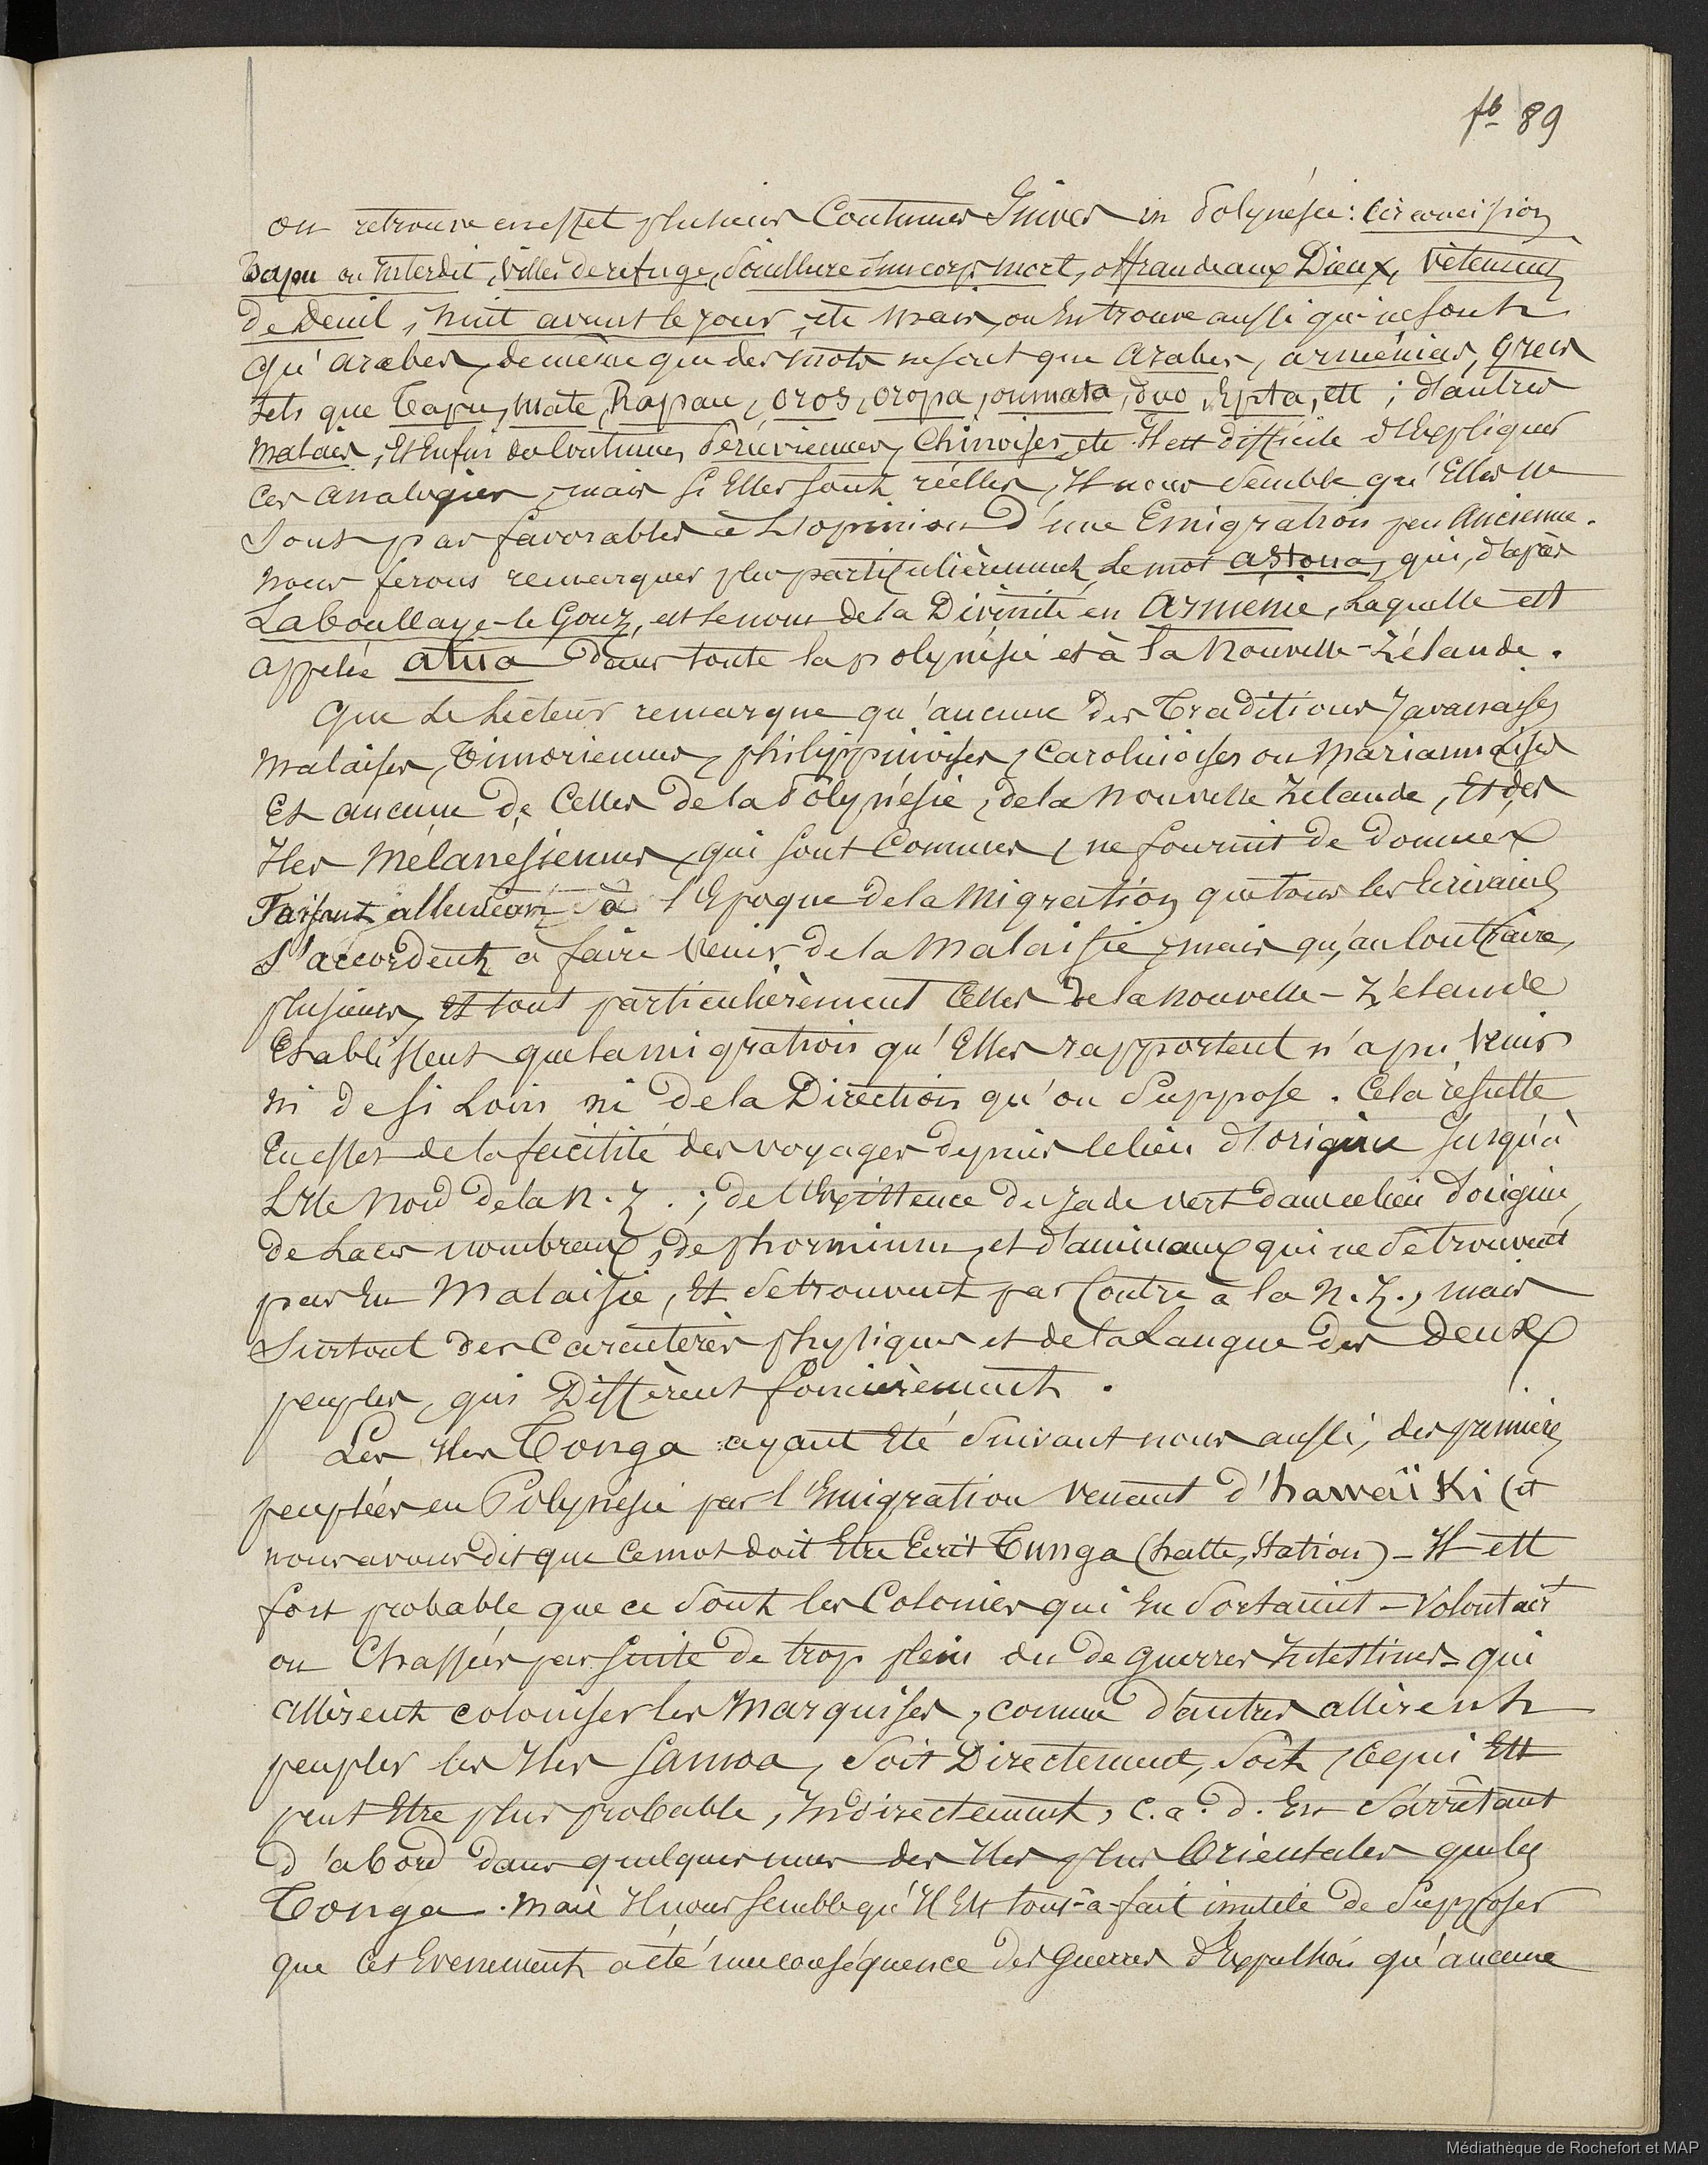 fo 89
on retrouve en effet plusieurs Coutumes Juives en Polynésie : Circoncision
Tapu ou Interdit, Villes de refuge, Souillure d'un corps mort, offrande aux Dieux, Vêtement
de Deuil, Nuit avant le jour, etc mais, on En trouve aussi qui ne sont
qu'arabes, de même que des mots ne sont que Arabes, arméniens, Grecs
tels que Tapu, Mate, Rapau, oros, oropa, ommata, duo, Epta, ett ; d'autres
Malais, Et Enfin des Coutumes Péruviennes, Chinoises, etc. Il est difficile d'Expliquer
Ces analogies, mais si Elles sont réelles, Il nous Semble qu'Elles ne
Sont pas favorables à L'opinion d'une Emigration peu Ancienne.
nous ferons remarquer plus particulièrement Le mot astoua, qui, d'après
Laboullaye-le Gouz, est le nom de la Divinité en Armenie, Laquelle est
appelée atua dans toute la polynésie et à la Nouvelle-Zélande.
Que Le Lecteur remarque qu'aucune des Traditions Javanaises
Malaises, Timoriennes, philippinoises, Carolinoises ou Mariannaises
Et aucune de Celles de la Polynésie, de la Nouvelle Zelande, Et des
Iles Mélanésiennes, qui sont Connues, ne fournit de Données
Faisant allusion à l'Epoque de la Migration que tous les Ecrivains
S'accordent a faire Venir de la Malaisie, mais qu'au Contraire,
plusieurs, Et tout particulièrement Celles de la Nouvelle-Zélande
Etablissent que la migration qu'Elles rapportent n'a pu Venir
ni de si Loin ni de la Direction qu'on Suppose. Cela résulte
En effet de la facilité des voyages depuis le lieu d'origine Jusqu'à
L'Ile Nord de la N.Z. ; de l'Existence du jade vert dans ce lieu d'origine,
de Lacs nombreux, de phormium, et d'animaux qui ne Se trouvent
pas En Malaisie, Et Se trouvent par Contre à la N.Z., mais
Surtout des Caractères physiques et de la Langue des Deux
peuples, qui Diffèrent foncièrement.
Les Iles Tonga ayant Eté Suivant nous aussi, des premières
peuplées en Polynesie par l'Emigration venant d'hawaïki (et
nous avons dit que ce mot doit Etre Ecrit Tunga (halte, Station) - Il est
fort probable que ce Sont les Colonies qui En Sortaient - Volontairt
ou Chassées par Suite de trop plein ou de guerres Intestines - qui
allèrent coloniser les Marquises, comme d'autres allèrent
peupler les Iles Samoa, Soit Directement, Soit, Ce qui Est
peut Etre plus probable, Indirectement, c.a.d. En S'arrêtant
d'abord dans quelques unes des Iles plus Orientales que les
Tonga. Mais Il nous semble qu'Il Est tout-à-fait inutile de Supposer
que Cet Evenement a été une conséquence des Guerres d'Expulsion qu'aucune
Médiathèque de Rochefort et MAP